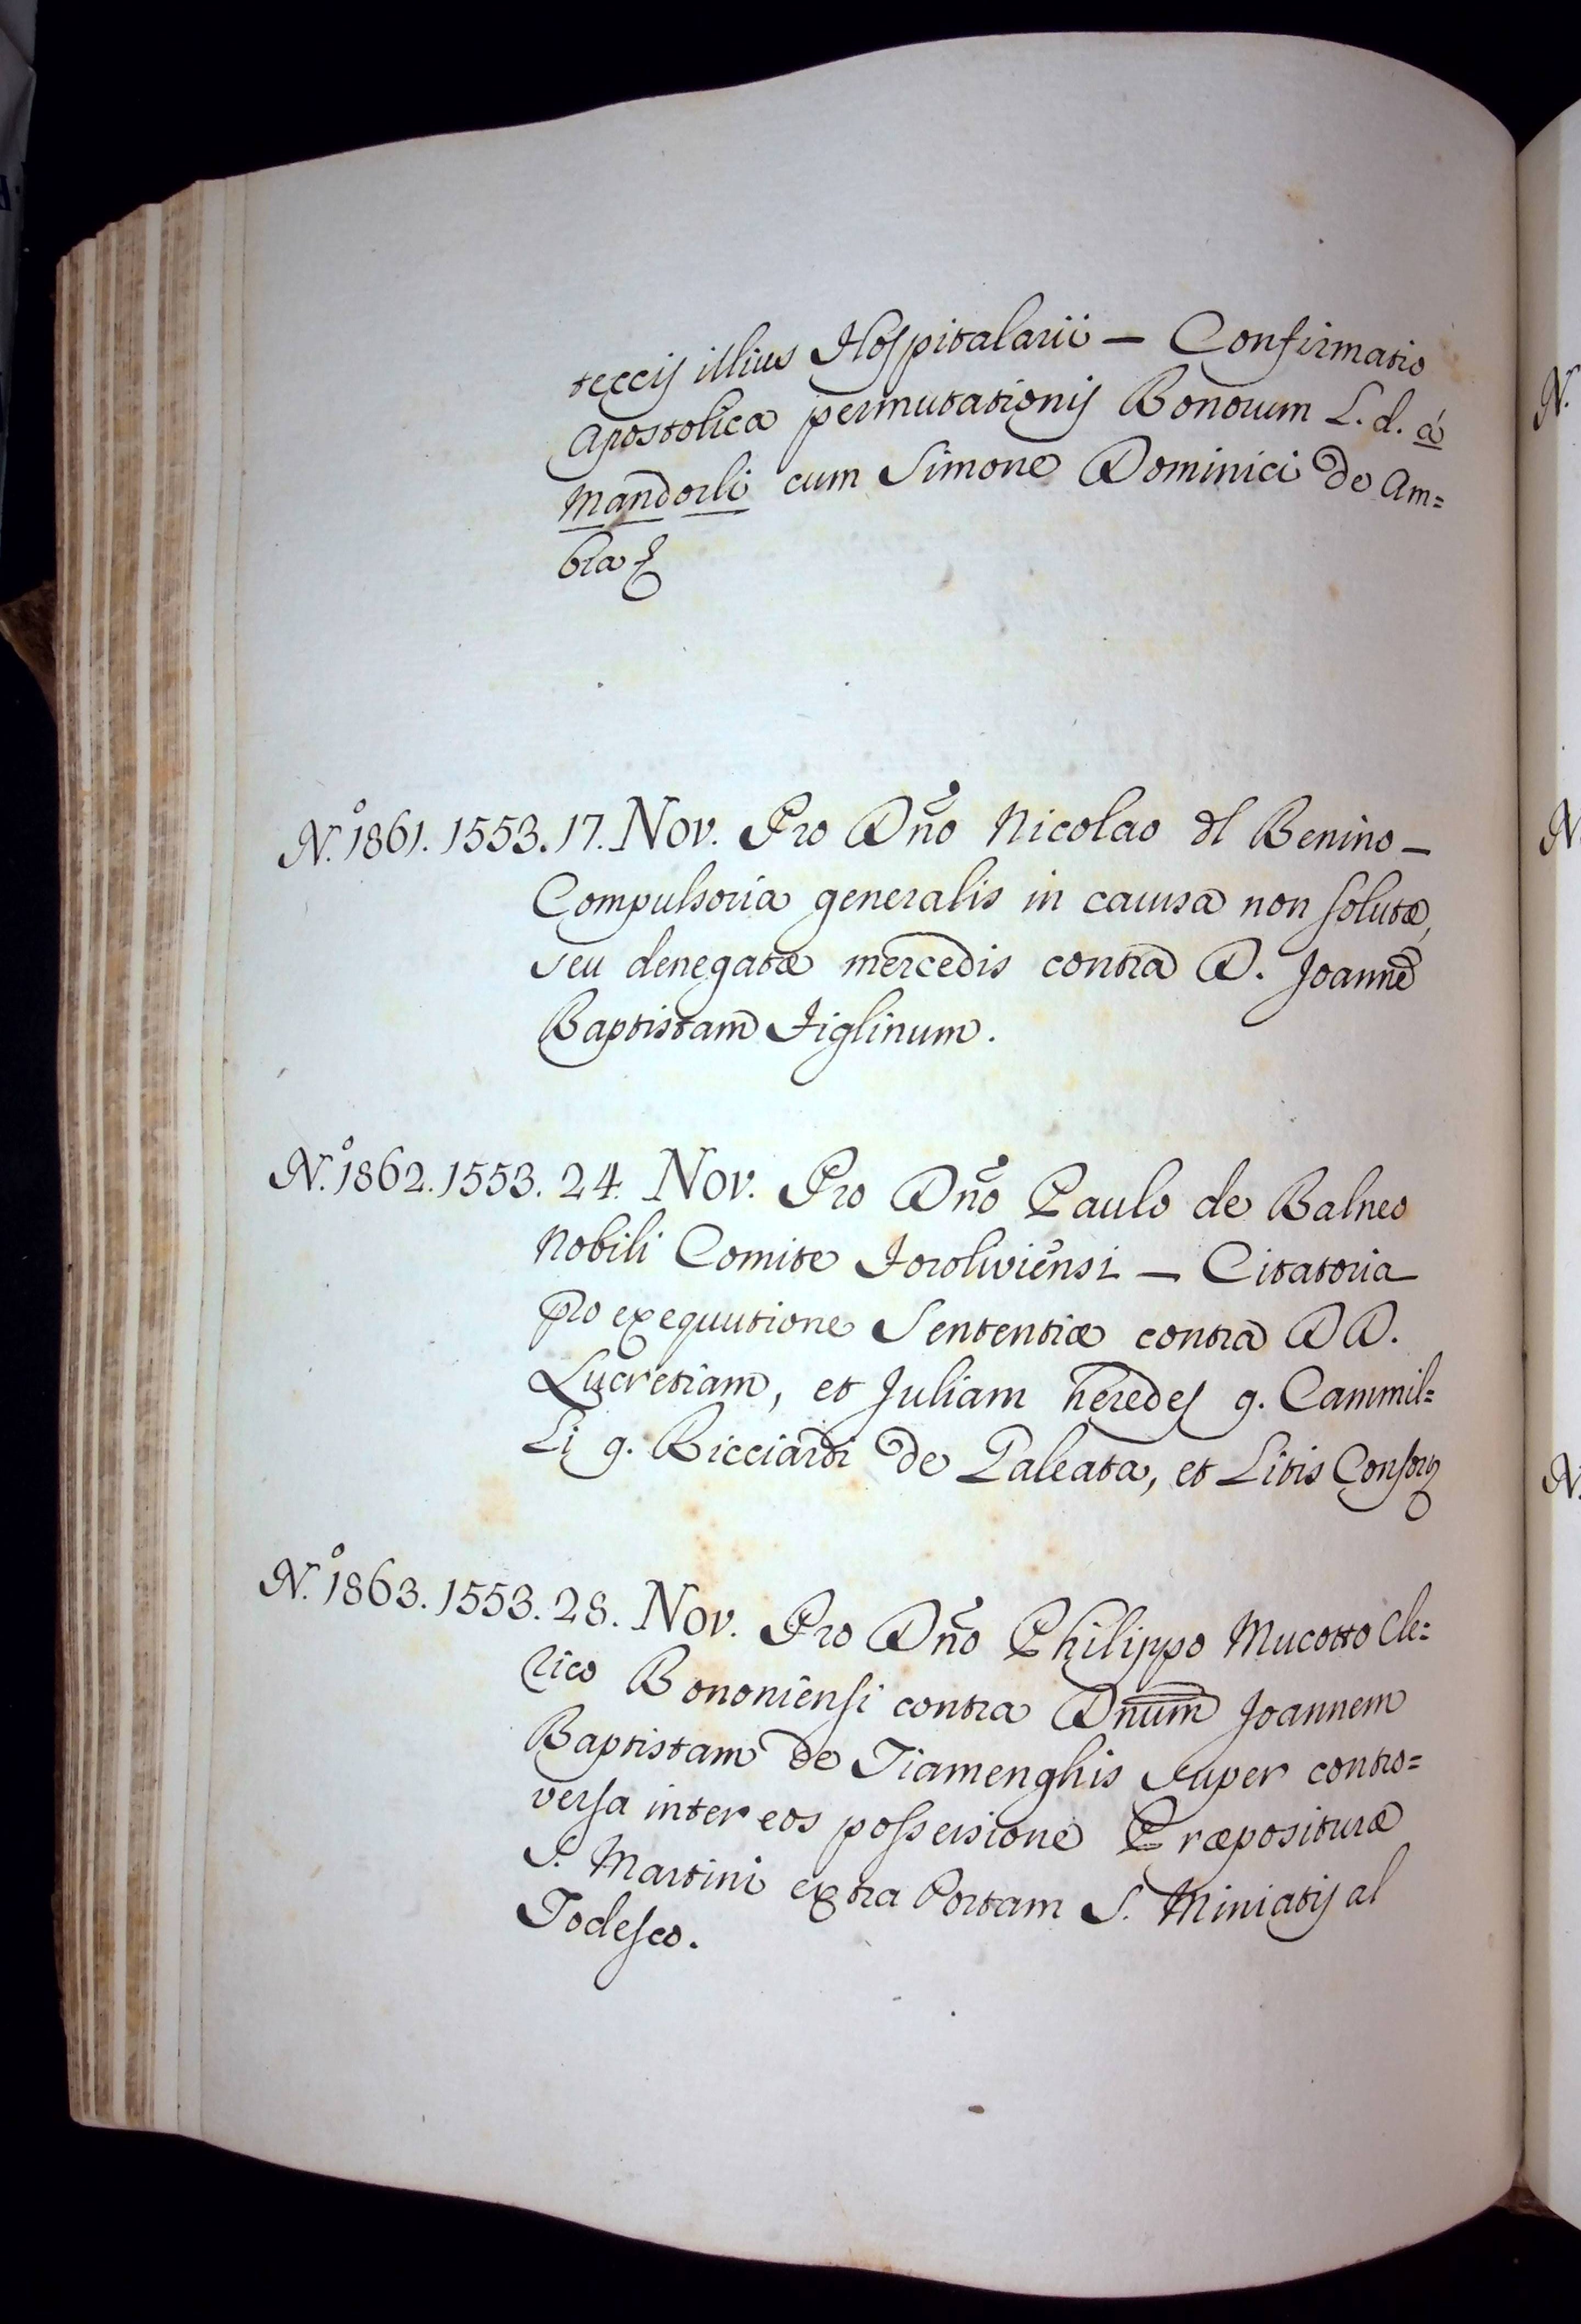 teccij illius Hospitalarii — Confirmatio
Apostolica permutationis Bonorum L. d. a
Mandorli cum Simone Dominici de Am=
bra
N.° 1861. 1553. 17. Nov. Pro Dno Nicolao del Benino —
Compulsoria generalis in caussa non solutæ,
seu denegatæ mercedis contra D. Joannē
Baptistam Figlinum.
N.° 1862. 1553. 24. Nov. Pro Dno Paulo de Balneo
Nobili Comite Foroliviensi — Citatoria
pro exequutione Sententiæ contra DD.
Lucretiam, et Juliam heredes q. Cammil=
li q. Ricciardi de Galeata, et Litis Consort
N.° 1863. 1553. 28. Nov. Pro Dno Philippo Mucotto Cle=
rico Bononiensi contra Dnum Joannem
Baptistam de Tiamenghis super contro=
versa inter eos possessione Præposituræ
S. Martini extra Portam S. Miniatis al
Todesco.
N.
N.
N.